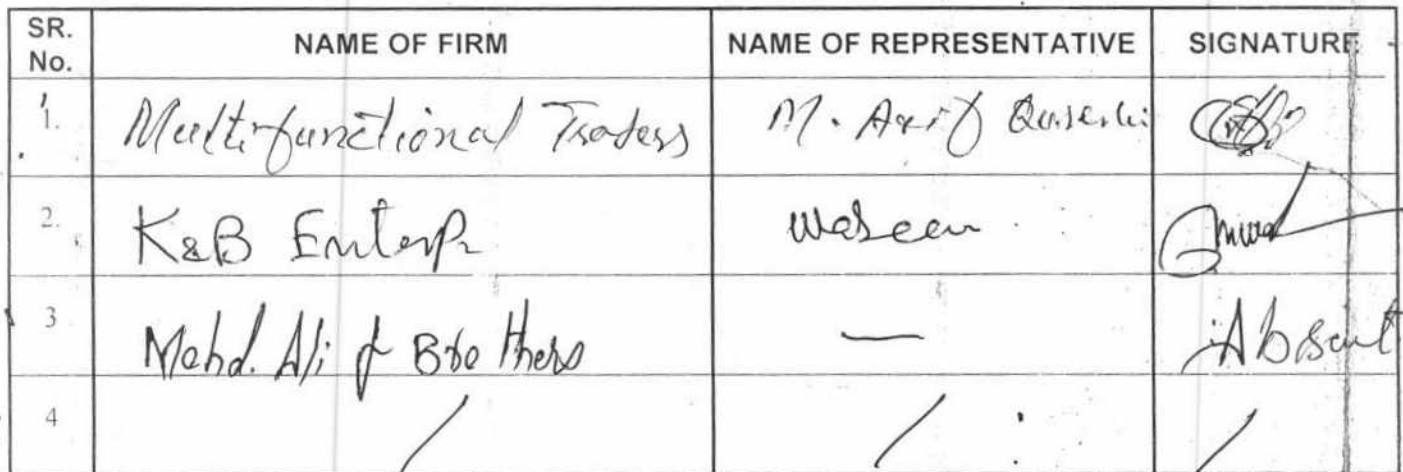 SR. No. NAME OF FIRM NAME OF REPRESENTATIVE SIGNATURE
1. Multifunctional Traders M. Arif Qureshi
2. K&B Enterp. Waseem
3 Mohd. Ali & Brothers — Absent
4 / / /